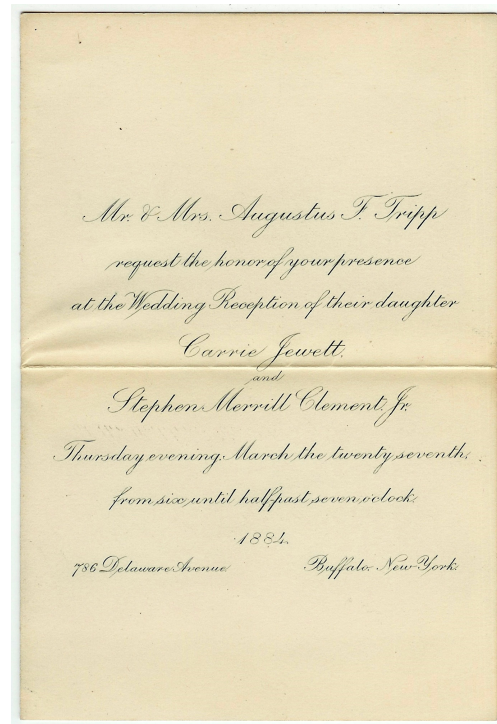 Mr. & Mrs. Augustus F. Tripp
request the honor of your presence
at the Wedding Reception of their daughter
Carrie Jewett,
and
Stephen Merrill Clement, Jr.
Thursday evening, March the twenty seventh,
from six until half past seven o'clock.
1884.
786 Delaware Avenue. Buffalo, New York.